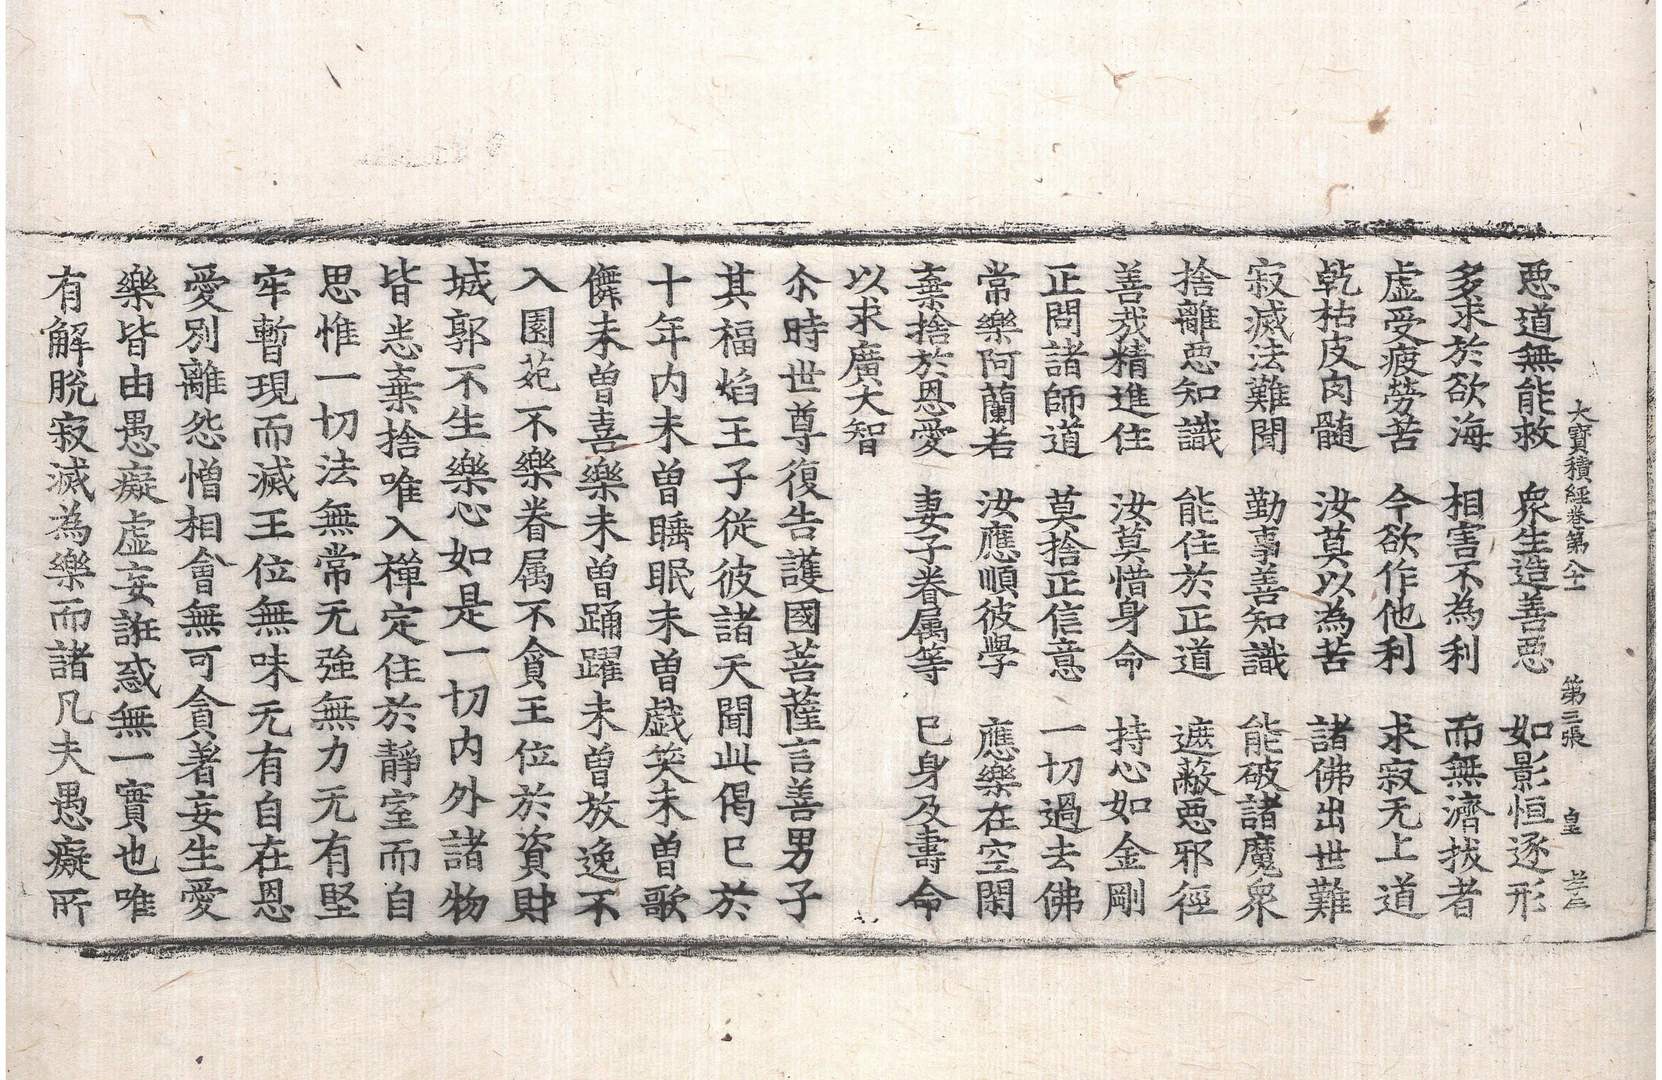 大寶積經卷第八十一 第三張 皇
惡道無能救 衆生造善惡 如影恒逐形
多求於欲海 相害不為利 而無濟拔者
虛受疲勞苦 今欲作他利 求寂无上道
乾枯皮肉髓 汝莫以為苦 諸佛出世難
寂滅法難聞 勤事善知識 能破諸魔衆
捨離惡知識 能住於正道 遮蔽惡邪徑
善哉精進住 汝莫惜身命 持心如金剛
正問諸師道 莫捨正信意 一切過去佛
常樂阿蘭若 汝應順彼學 應樂在空閑
棄捨於恩愛 妻子眷属等 已身及壽命
以求廣大智
尒時世尊復告護國菩薩言善男子
其福焰王子從彼諸天聞此偈已於
十年内未曾睡眠未曾戲笑未曾歌
儛未曾喜樂未曾踊躍未曾放逸不
入園菀不樂眷属不貪王位於資財
城郭不生樂心如是一切内外諸物
皆悉棄捨唯入禪定住於靜室而自
思惟一切法無常无強無力无有堅
牢暫現而滅王位無味无有自在恩
愛別離怨憎相會無可貪著妄生愛
樂皆由愚癡虛妄誑惑無一實也唯
有解脫寂滅為樂而諸凡夫愚癡所